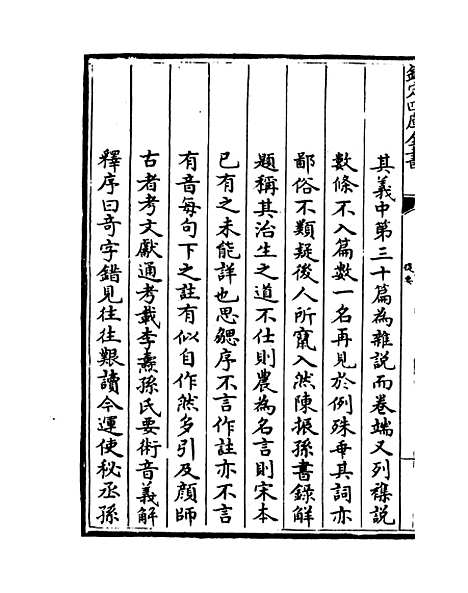 欽定四庫全書
提要
其義中第三十篇為雜説而卷端又列襍説
數條不入篇數一名再見於例殊乖其詞亦
鄙俗不類疑後人所竄入然陳振孫書錄解
題稱其治生之道不仕則農為名言則宋本
已有之未能詳也思勰序不言作註亦不言
有音每句下之註有似自作然多引及顔師
古者考文獻通考載李燾孫氏要術音義解
釋序曰奇字錯見往往艱讀今運使秘丞孫